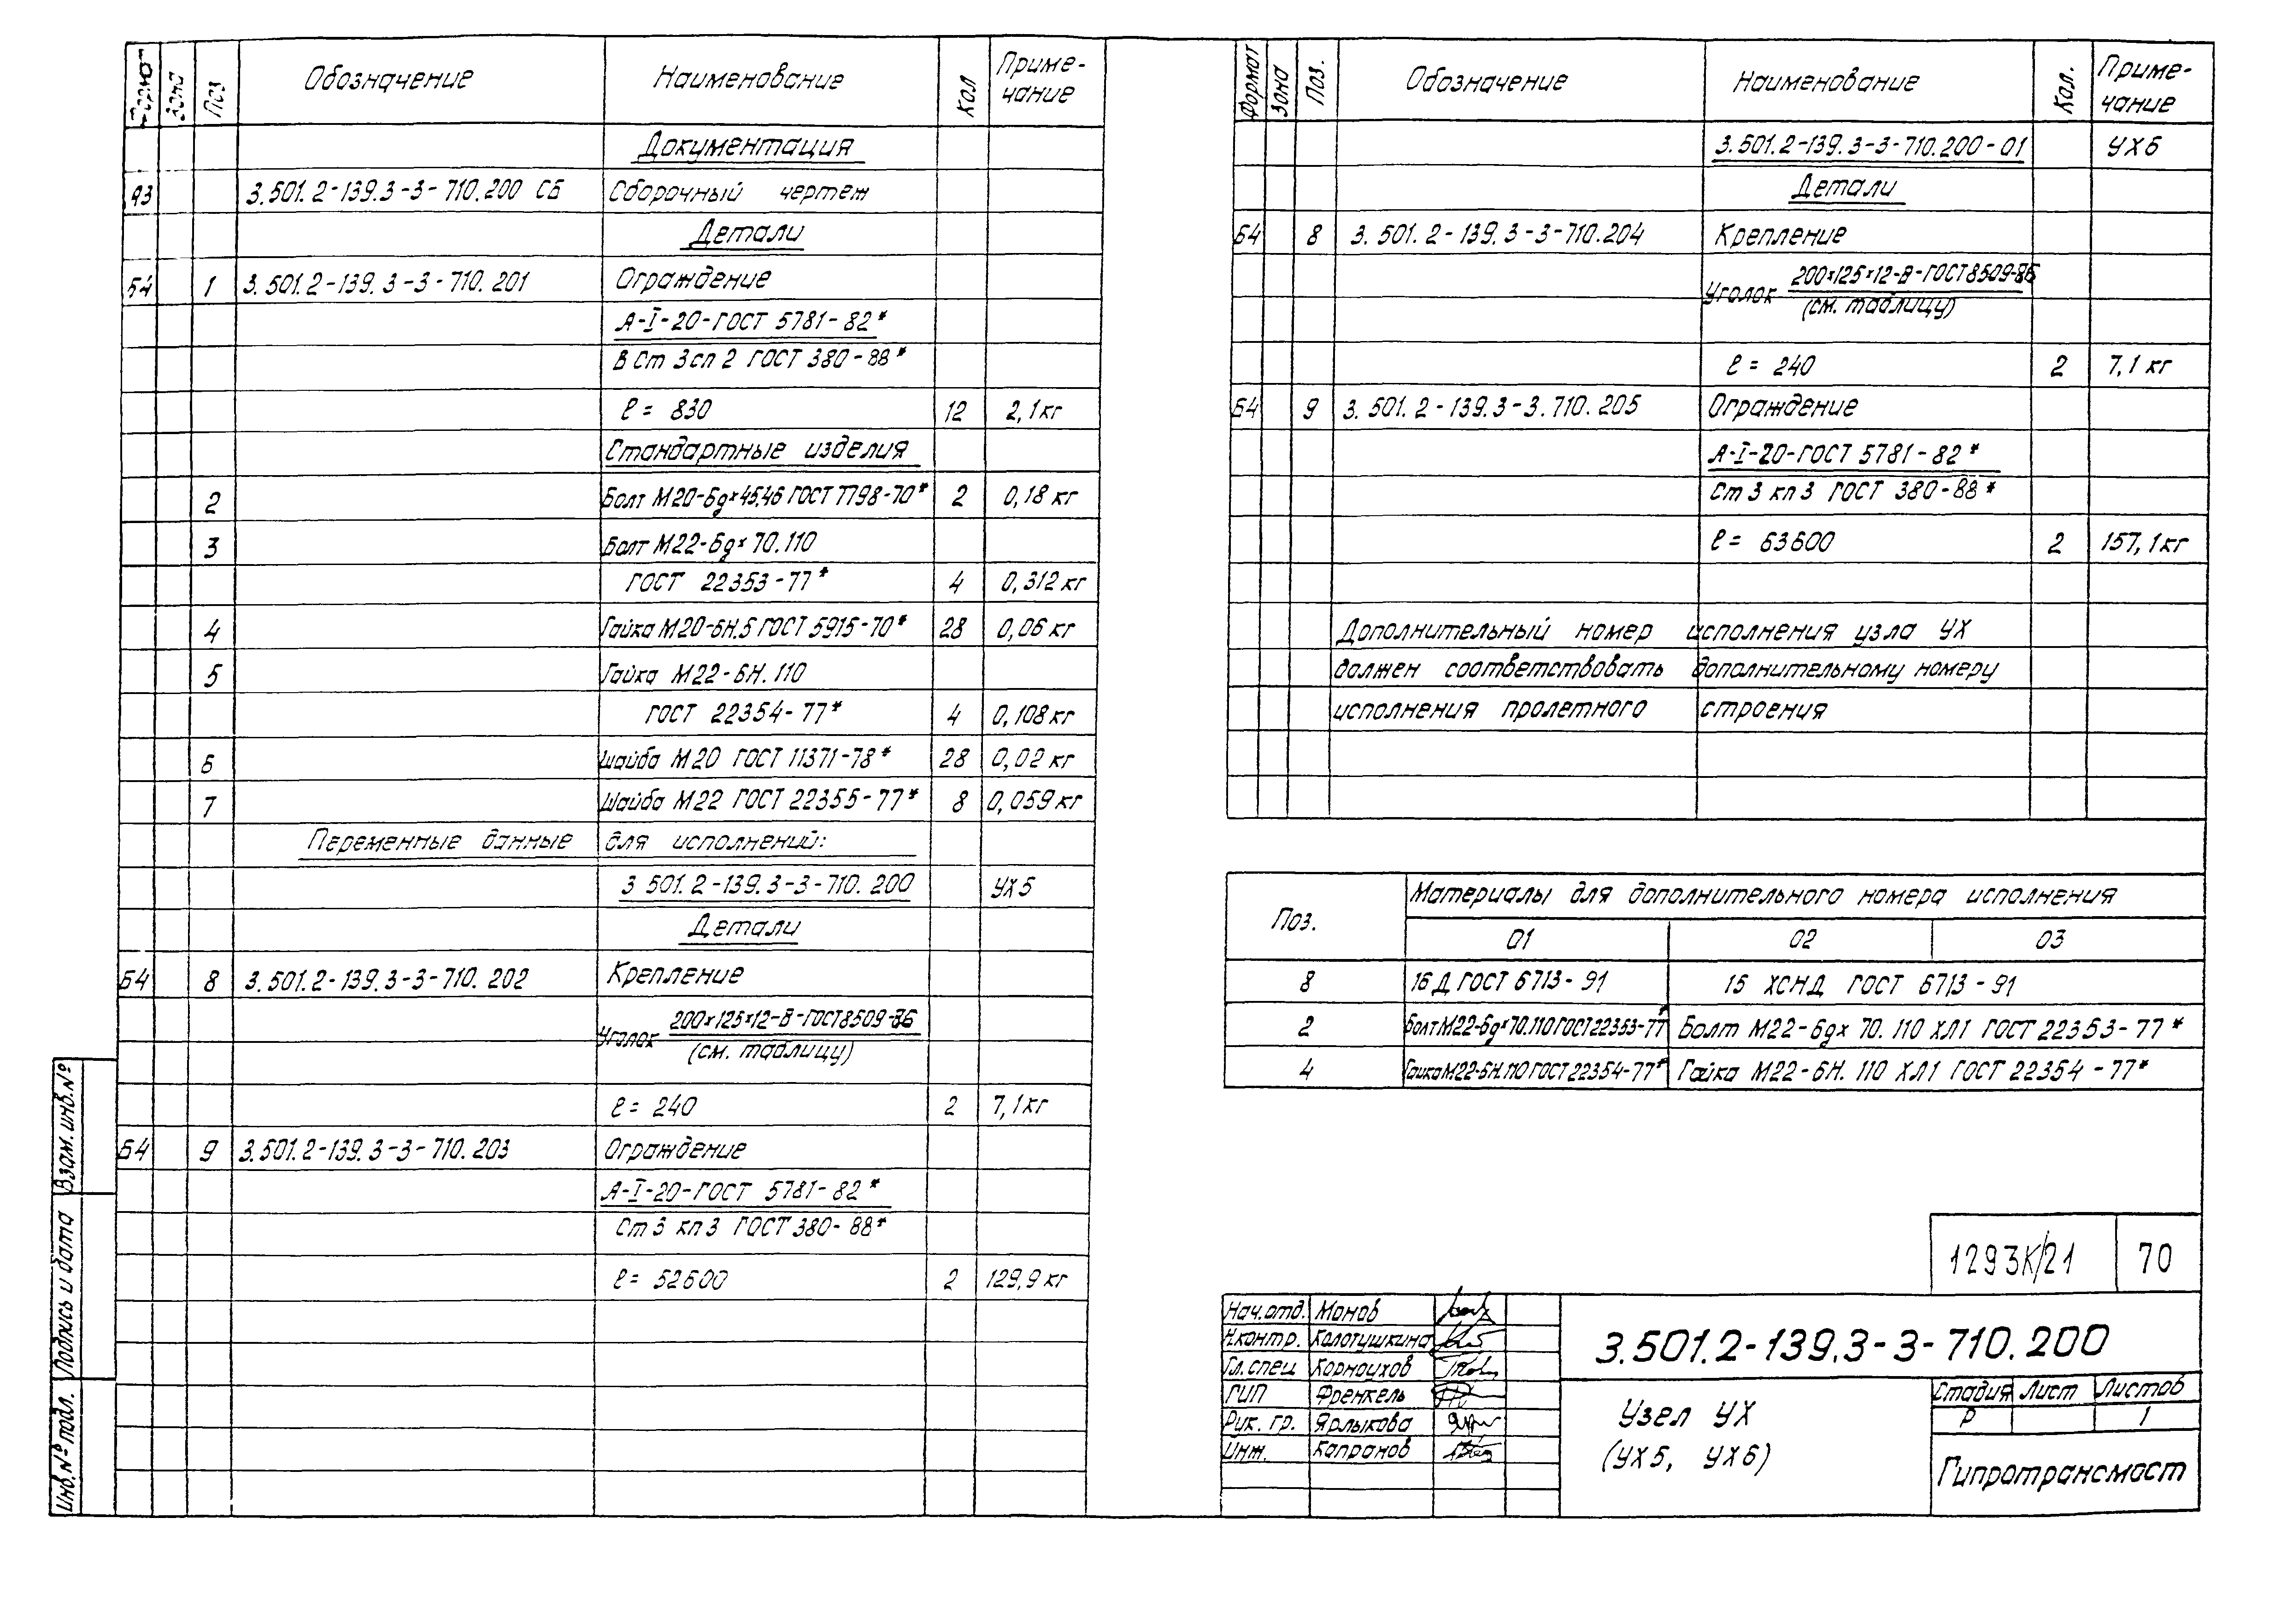 Формат Зона Поз Обозначение Наименование Кол Приме-
чание
Документация
А3 3.501.2-139.3-3-710.200 СБ Сборочный чертеж
Детали
Б4 1 3.501.2-139.3-3-710.201 Ограждение
А-I-20-ГОСТ 5781-82*
В Ст 3сп 2 ГОСТ 380-88*
ℓ= 830 12 2,1кг
Стандартные изделия
2 Болт М20-6gх45,46 ГОСТ 7798-70* 2 0,18 кг
3 Болт М22-6gх 70.110
ГОСТ 22353-77* 4 0,312 кг
4 Гайка М20-6Н.5 ГОСТ 5915-70* 28 0,06 кг
5 Гайка М22-6Н.110
ГОСТ 22354-77* 4 0,108 кг
6 Шайба М20 ГОСТ 11371-78* 28 0,02 кг
7 Шайба М22 ГОСТ 22355-77* 8 0,059 кг
Переменные данные для исполнений:
3 501.2-139.3-3-710.200 УХ5
Детали
Б4 8 3.501.2-139.3-3-710.202 Крепление
Уголок 200х125х12-В-ГОСТ8509-86
(см. таблицу)
ℓ= 240 2 7,1кг
Б4 9 3.501.2-139.3-3-710.203 Ограждение
А-I-20-ГОСТ 5781-82*
Ст3 кп3 ГОСТ 380-88*
ℓ= 52600 2 129,9 кг
Формат Зона Поз. Обозначение Наименование Кол. Приме-
чание
3.501.2-139.3-3-710.200-01 УХ6
Детали
Б4 8 3.501.2-139.3-3-710.204 Крепление
Уголок 200х125х12-В-ГОСТ8509-86
(см. таблицу)
ℓ= 240 2 7,1 кг
Б4 9 3.501.2-139.3-3.710.205 Ограждение
А-I-20-ГОСТ 5781-82*
Ст3 кп3 ГОСТ 380-88*
ℓ= 63600 2 157,1кг
Дополнительный номер исполнения узла УХ
должен соответствовать дополнительному номеру
исполнения пролетного строения
Поз. Материалы для дополнительного номера исполнения
01 02 03
8 16Д ГОСТ 6713-91 15 ХСНД ГОСТ 6713-91
2 Болт М22-6gх70.110 ГОСТ 22353-77* Болт М22-6gх 70.110 ХЛ1 ГОСТ 22353-77*
4 Гайка М22-6Н.110 ГОСТ 22354-77* Гайка М22-6Н.110 ХЛ1 ГОСТ 22354-77*
Взам.инв.№
Подпись и дата
Инв.№ подл.
1293К/21 70
Нач.отд. Монов
Н.контр. Колотушкина
Гл.спец Корноухов
ГИП Френкель
Рук. гр. Ярлыкова
Инж. Капранов
3.501.2-139.3-3-710.200
Узел УХ
(УХ5, УХ6)
Стадия Лист Листов
Р 1
Гипротрансмост